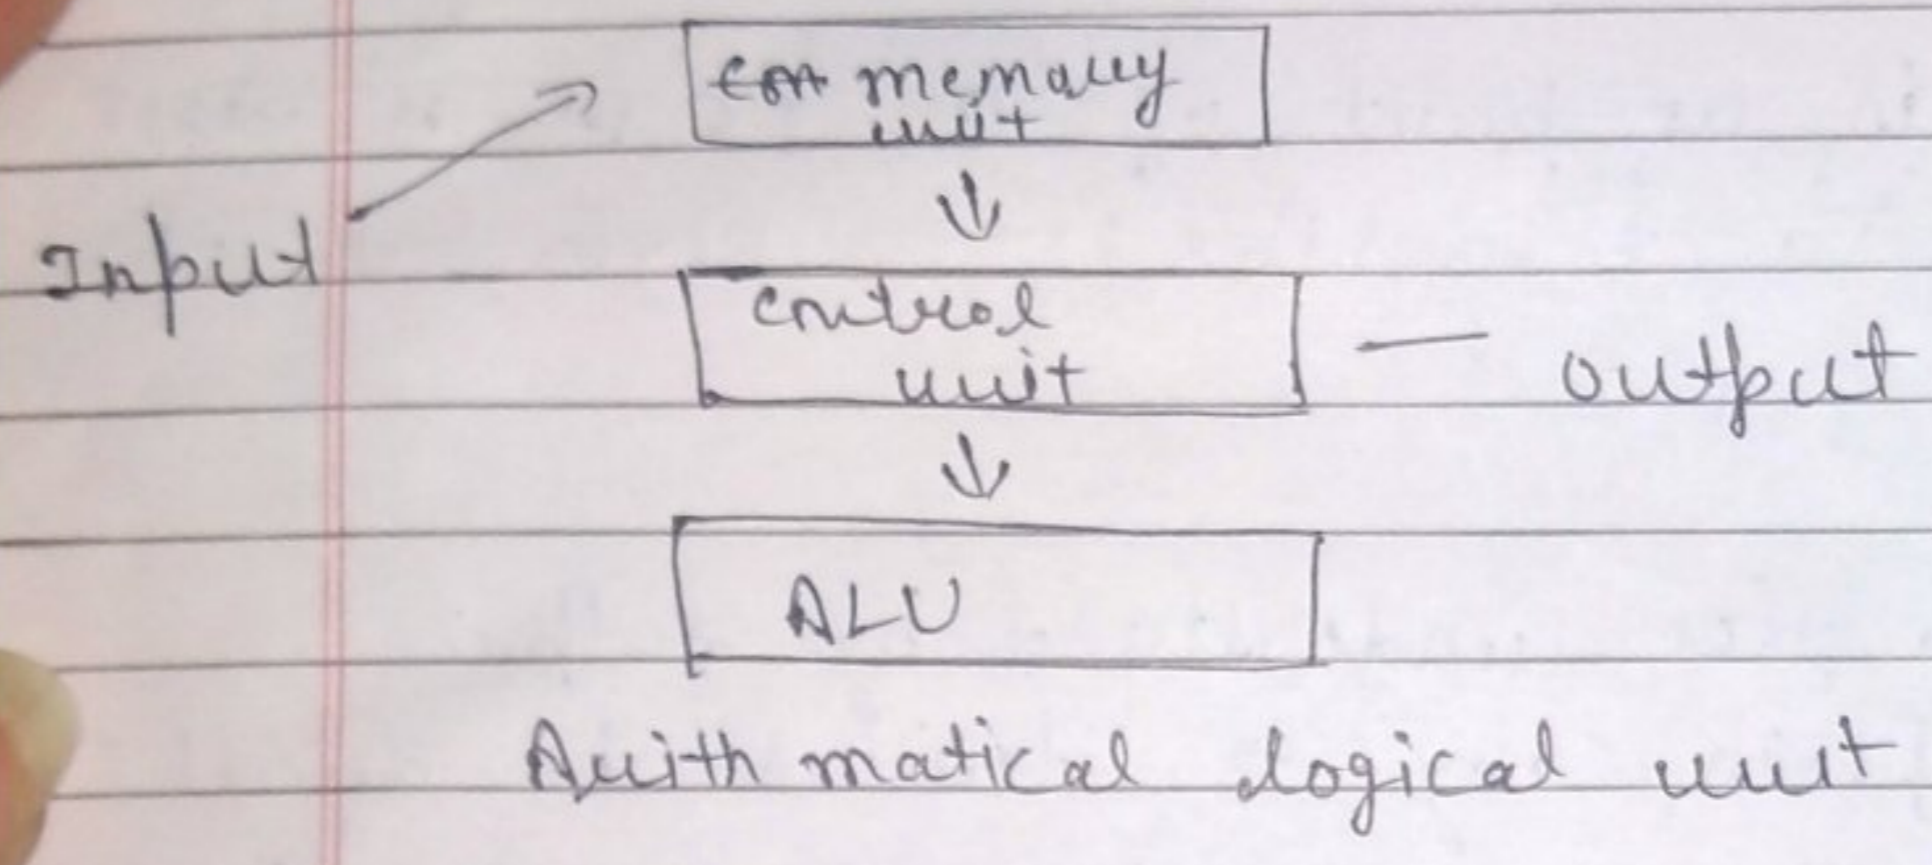 memory
unit
Input
control
unit
output
ALU
Arithmatical logical unit